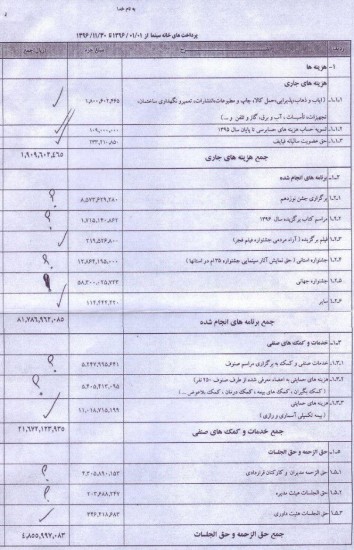 به نام خدا
پرداخت های خانه سینما از ۱۳۹۶/۰۱/۰۱ تا ۱۳۹۶/۱۱/۳۰
ردیف شرح مبلغ جزء ریال جمع
۱- هزینه ها
هزینه های جاری
۱.۱.۱ ( ایاب و ذهاب،پذیرایی،حمل کالا، چاپ و مطبوعات،انتشارات، تعمیر و نگهداری ساختمان، ۱,۶۰۰,۶۰۲,۶۴۵
تجهیزات، تأسیسات ، آب و برق، گاز و تلفن و ... )
۱.۱.۲ تسویه حساب هزینه های حسابرسی تا پایان سال ۱۳۹۵ ۱۰۹,۰۰۰,۰۰۰
۱.۱.۳ حق عضویت سالیانه فیاپف
جمع هزینه های جاری ۱,۹۰۹,۶۰۲,۴۶۵
۱.۲- برنامه های انجام شده
۱.۲.۱ برگزاری جشن نوزدهم ۸,۵۷۳,۶۲۹,۲۸۰
۱.۲.۲ مراسم کتاب برگزیده سال ۱۳۹۶ ۱,۷۱۵,۱۴۰,۸۶۲
۱.۲.۳ فیلم برگزیده ( آراء مردمی جشنواره فیلم فجر) ۲۱۹,۵۲۶,۸۰۰
۱.۲.۴ جشنواره استانی ( حق نمایش آثار سینمایی جشنواره ۳۵ام در استانها ) ۱۲,۸۶۴,۱۹۵,۰۰۰
۱.۲.۵ جشنواره جهانی
۱.۲.۶ سایر ۱۱۴,۲۴۲,۴۲۰
جمع برنامه های انجام شده ۸۱,۷۸۶,۹۶۲,۰۸۵
۱.۳- خدمات و کمک های صنفی
۱.۳.۱ خدمات صنفی و کمک به برگزاری مراسم صنوف ۵,۲۴۷,۹۹۵,۶۴۱
۱.۳.۲ هزینه های حمایتی به اعضاء معرفی شده از طرف صنوف ۲۵۰ نفر) ۵,۴۰۵,۴۱۳,۰۹۵
( کمک بگیران ، کمک های بیمه ، کمک درمان ، کمک بلاعوض ... )
۱.۳.۳ هزینه های حمایتی ۱۱,۰۱۸,۷۱۵,۱۹۹
( بیمه تکمیلی آسماری و رازی )
جمع خدمات و کمک های صنفی ۲۱,۶۷۲,۱۲۳,۹۳۵
۱.۵- حق الزحمه و حق الجلسات
۱.۵.۱ حق الزحمه مدیران و کارکنان قراردادی ۴,۲۰۵,۸۹۰,۱۵۳
۱.۵.۲ حق الجلسات هیئت مدیره ۲۰۳,۶۸۸,۲۴۷
۱.۵.۳ حق الجلسات هئیت داوری
جمع حق الزحمه و حق الجلسات ۴,۸۵۵,۹۹۷,۰۸۳